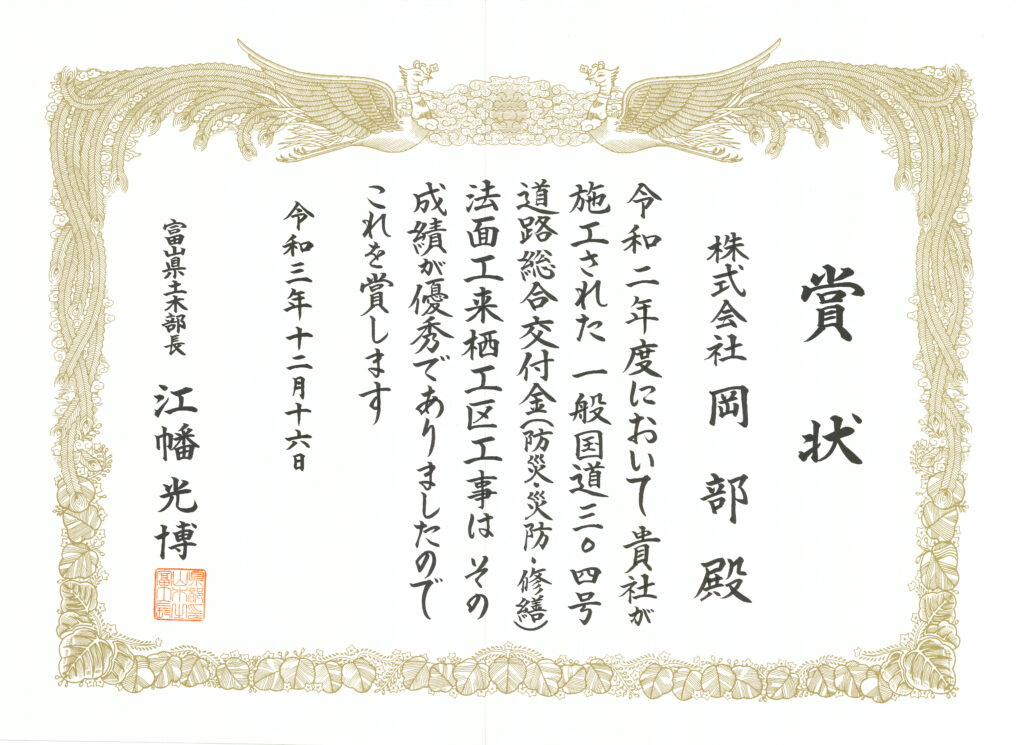 賞状
株式会社 岡部殿
令和二年度において貴社が
施工された 一般国道三〇四号
道路総合交付金(防災・災防・修繕)
法面工来栖工区工事は その
成績が優秀でありましたので
これを賞します
令和三年十二月十六日
富山県土木部長 江幡光博